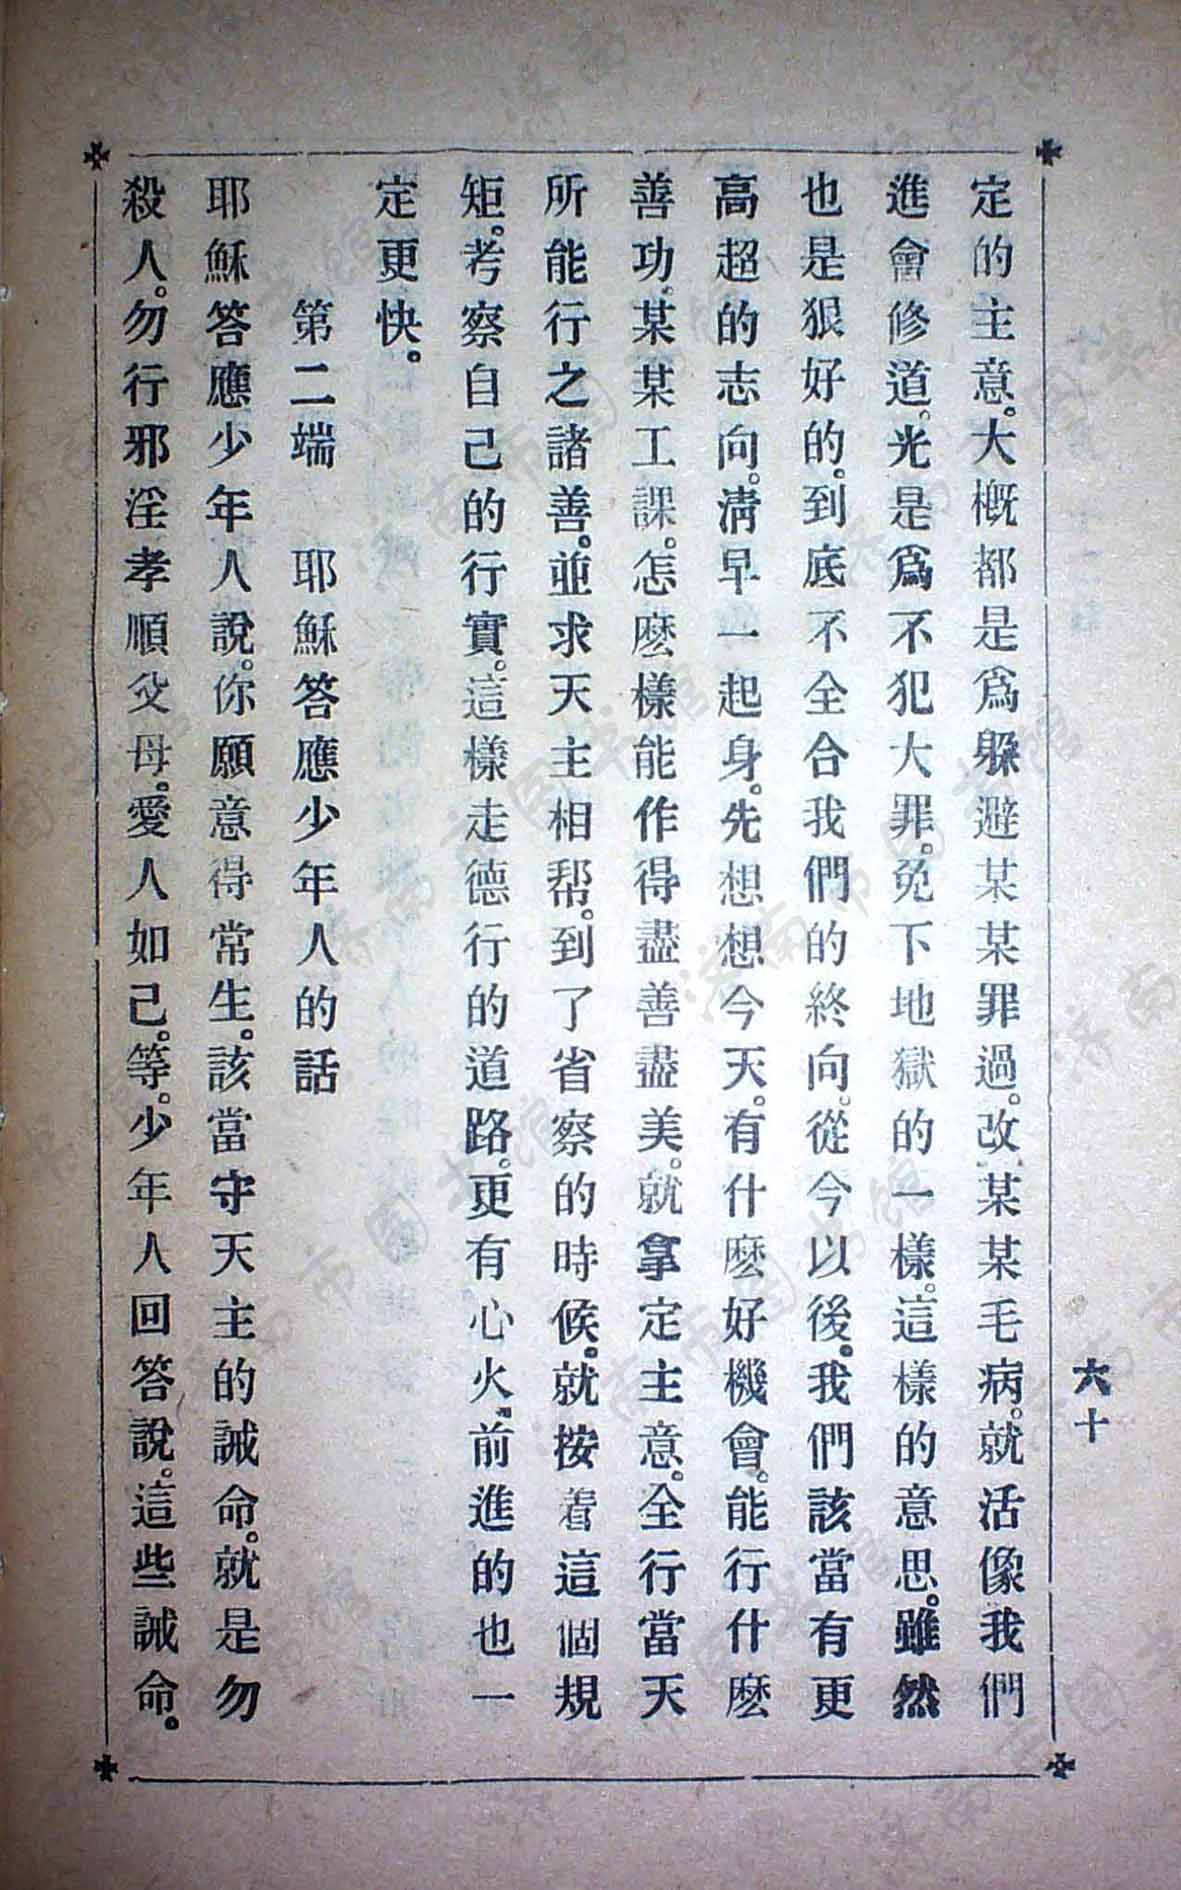 六十
定的主意。大概都是爲躲避某某罪過。改某某毛病。就活像我們
進會修道。光是爲不犯大罪。免下地獄的一樣。這樣的意思。雖然
也是狠好的。到底不全合我們的終向。從今以後。我們該當有更
高超的志向。淸早一起身。先想想今天。有什麽好機會。能行什麽
善功。某某工課。怎麽樣能作得盡善盡美。就拿定主意。全行當天
所能行之諸善。並求天主相帮。到了省察的時候。就按着這個規
矩。考察自己的行實。這樣走德行的道路。更有心火。前進的也一
定更快。
第二端　耶穌答應少年人的話
耶穌答應少年人說。你願意得常生。該當守天主的誡命。就是勿
殺人。勿行邪淫孝順父母。愛人如己。等。少年人回答說。這些誡命。
济南市图书馆